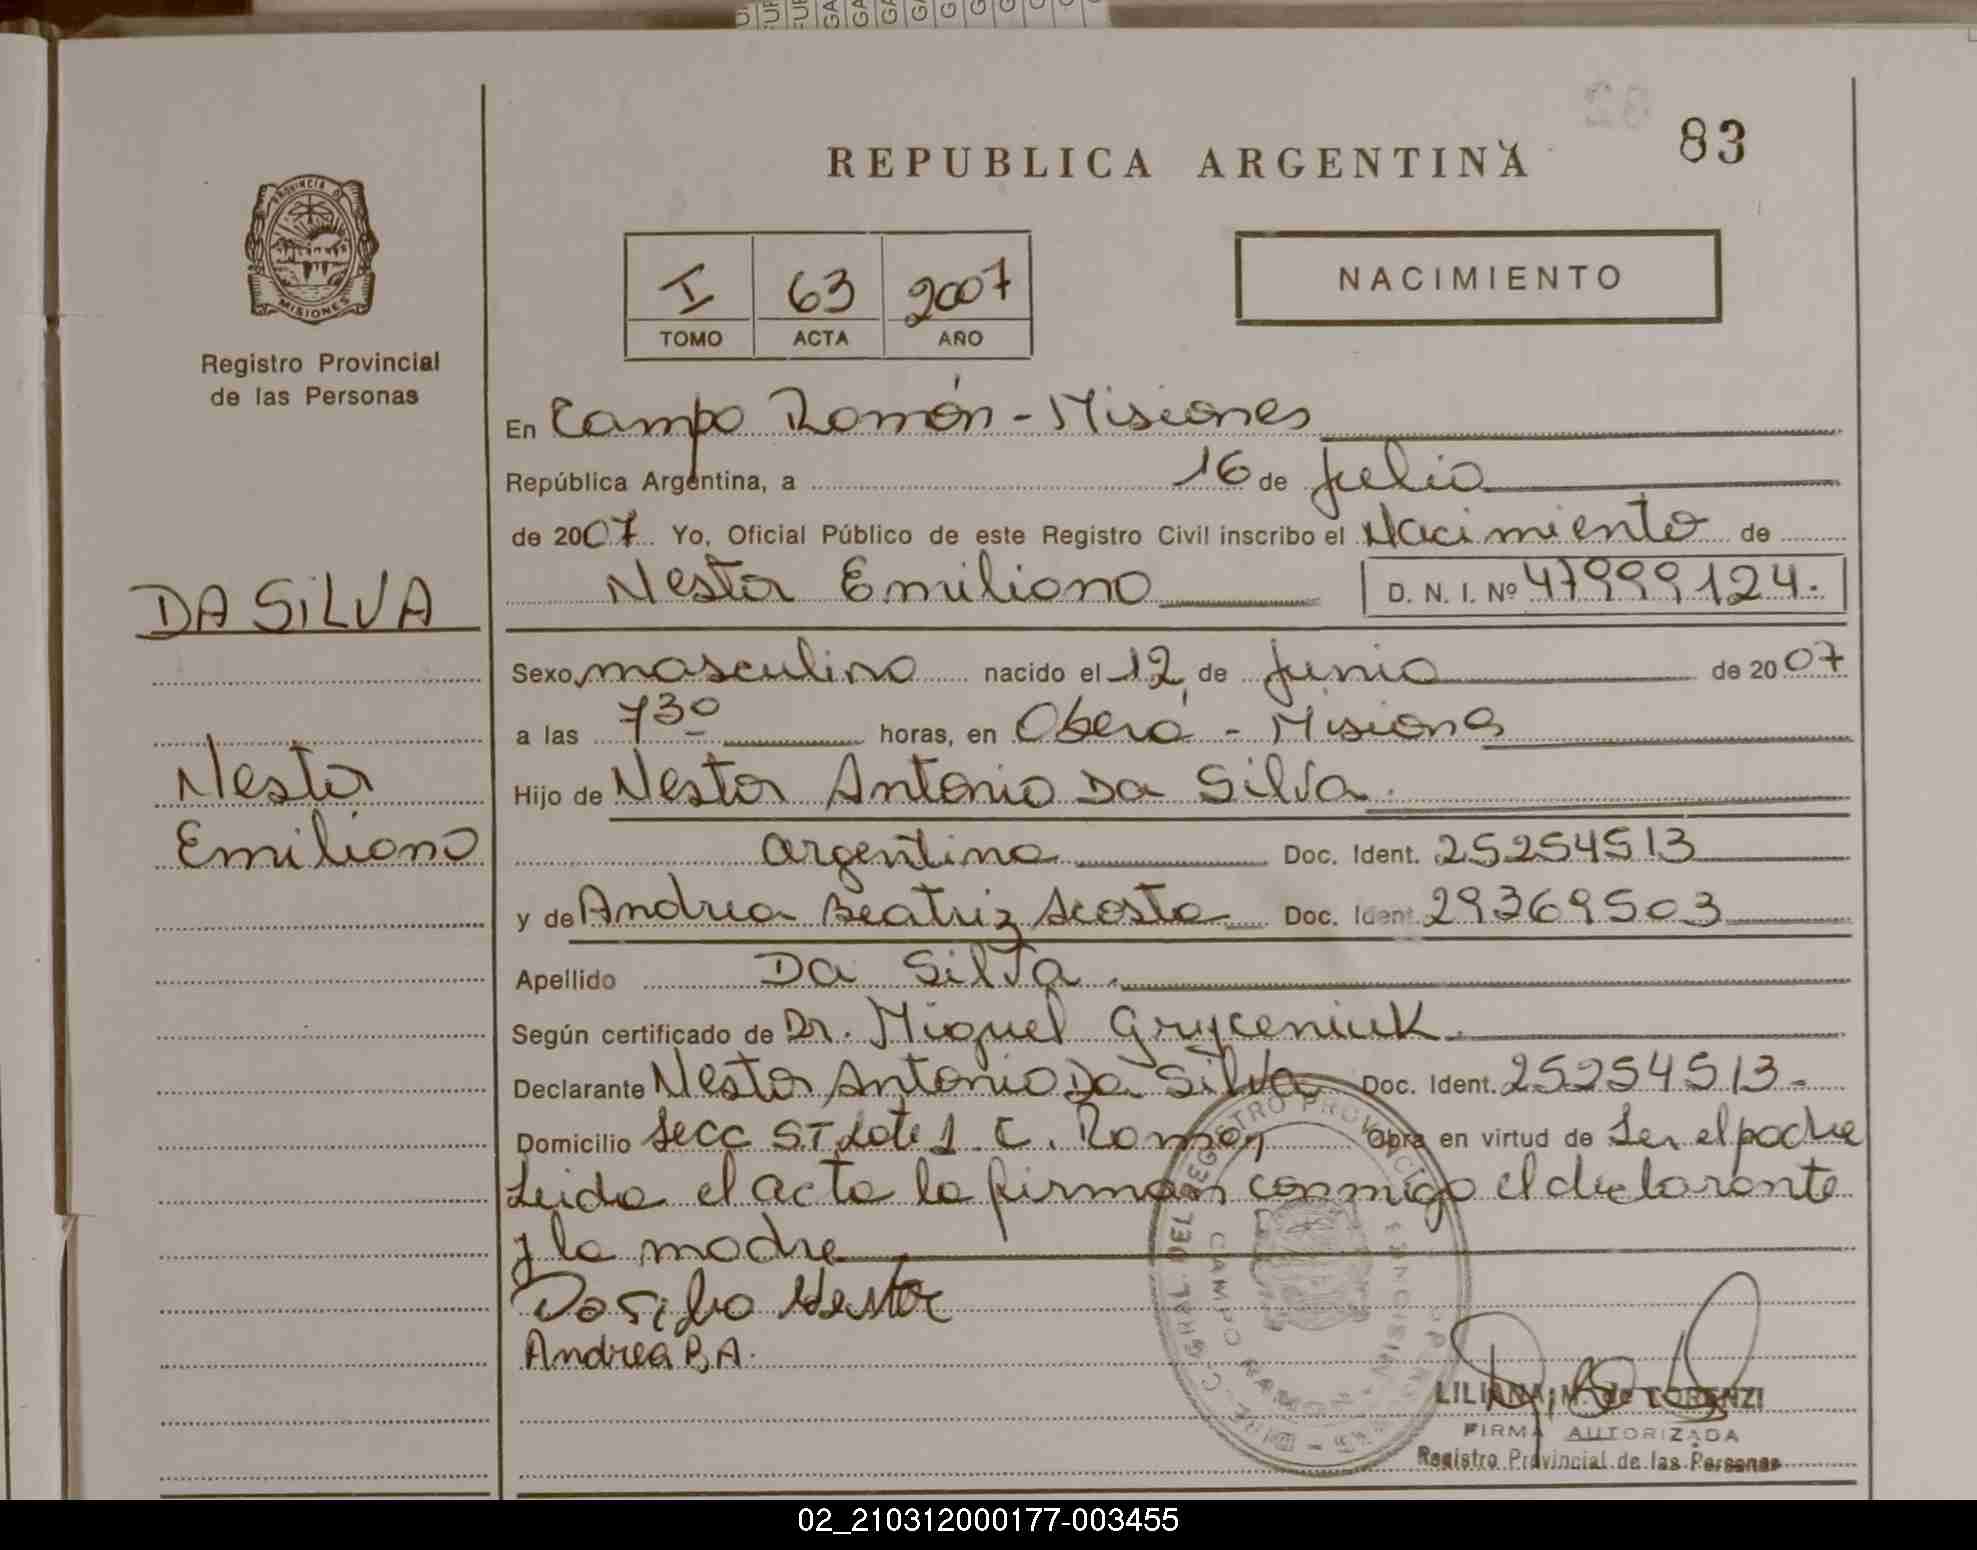 83
REPUBLICA ARGENTINA
PROVINCIA DE
MISIONES
Registro Provincial
de las Personas
I 63 2007
TOMO ACTA AÑO
NACIMIENTO
En Campo Ramón - Misiones
República Argentina, a 16 de Julio
de 2007 Yo, Oficial Público de este Registro Civil inscribo el Nacimiento de
Nestor Emiliano D. N. I. Nº 47999124.
DA SILVA
Sexo masculino nacido el 12 de Junio de 2007
a las 7 30 horas, en Oberá - Misiones
Nestor
Emiliano
Hijo de Nestor Antonio Da Silva.
argentino Doc. Ident. 25254513
y de Andrea Beatriz Acosta Doc. Ident. 29369503
Apellido Da Silva.
Según certificado de Dr. Miguel Gryceniuk.
Declarante Nestor Antonio Da Silva Doc. Ident. 25254513-
Domicilio Secc ST Lote 1 C. Ramon Obra en virtud de Ser el padre
Leida el acta la firman conmigo el declarante
y la madre
Da Silva Nestor
Andrea B, A.
LILIANA M. de LORENZI
FIRMA AUTORIZADA
Registro Provincial de las Personas
02_210312000177-003455